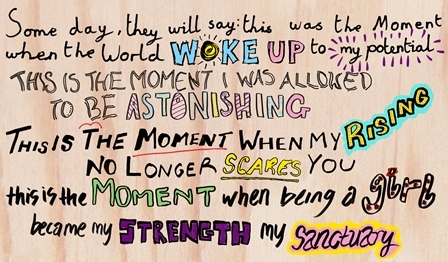 Some day, they will say: this was the Moment
when the World WOKE UP to my potential
THIS IS THE MOMENT I WAS ALLOWED
TO BE ASTONISHING
THIS IS THE MOMENT WHEN MY RISING
NO LONGER SCARES YOU
this is the MOMENT when being a girl
became my STRENGTH my Sanctuary